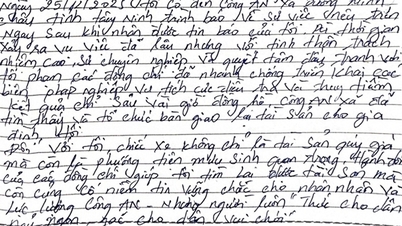 Ngày 25/11/2025 tôi có đến Công AN xã
chậu tỉnh Tây Ninh trình báo Về sự việc nêu trên
Ngay sau khi nhận được tin báo của tôi. thời gian
xảy ra vụ việc đã lâu nhưng với tinh thần trách
nhiệm cao, sự chuyên nghiệp và quyết tâm đấu tranh với
tội phạm các đồng chí đã nhanh chóng triển khai các
biện pháp nghiệp vụ tích cực điều tra và truy tìm
kết quả chỉ sau vài giờ đồng hồ Công AN xã đã
tìm thấy và tổ chức bàn giao lại tài sản cho gia
đình tôi
Đối với tôi, chiếc xe không chỉ là tài sản quý giá
mà còn là phương tiện mưu sinh quan trọng. Hành động
của các đồng chí giúp tôi tìm lại được tài sản mà
còn củng cố niềm tin vững chắc cho nhân dân và
lực lượng Công AN - Những người luôn "Thức cho dân
ngủ ngon, cho dân vui chơi"